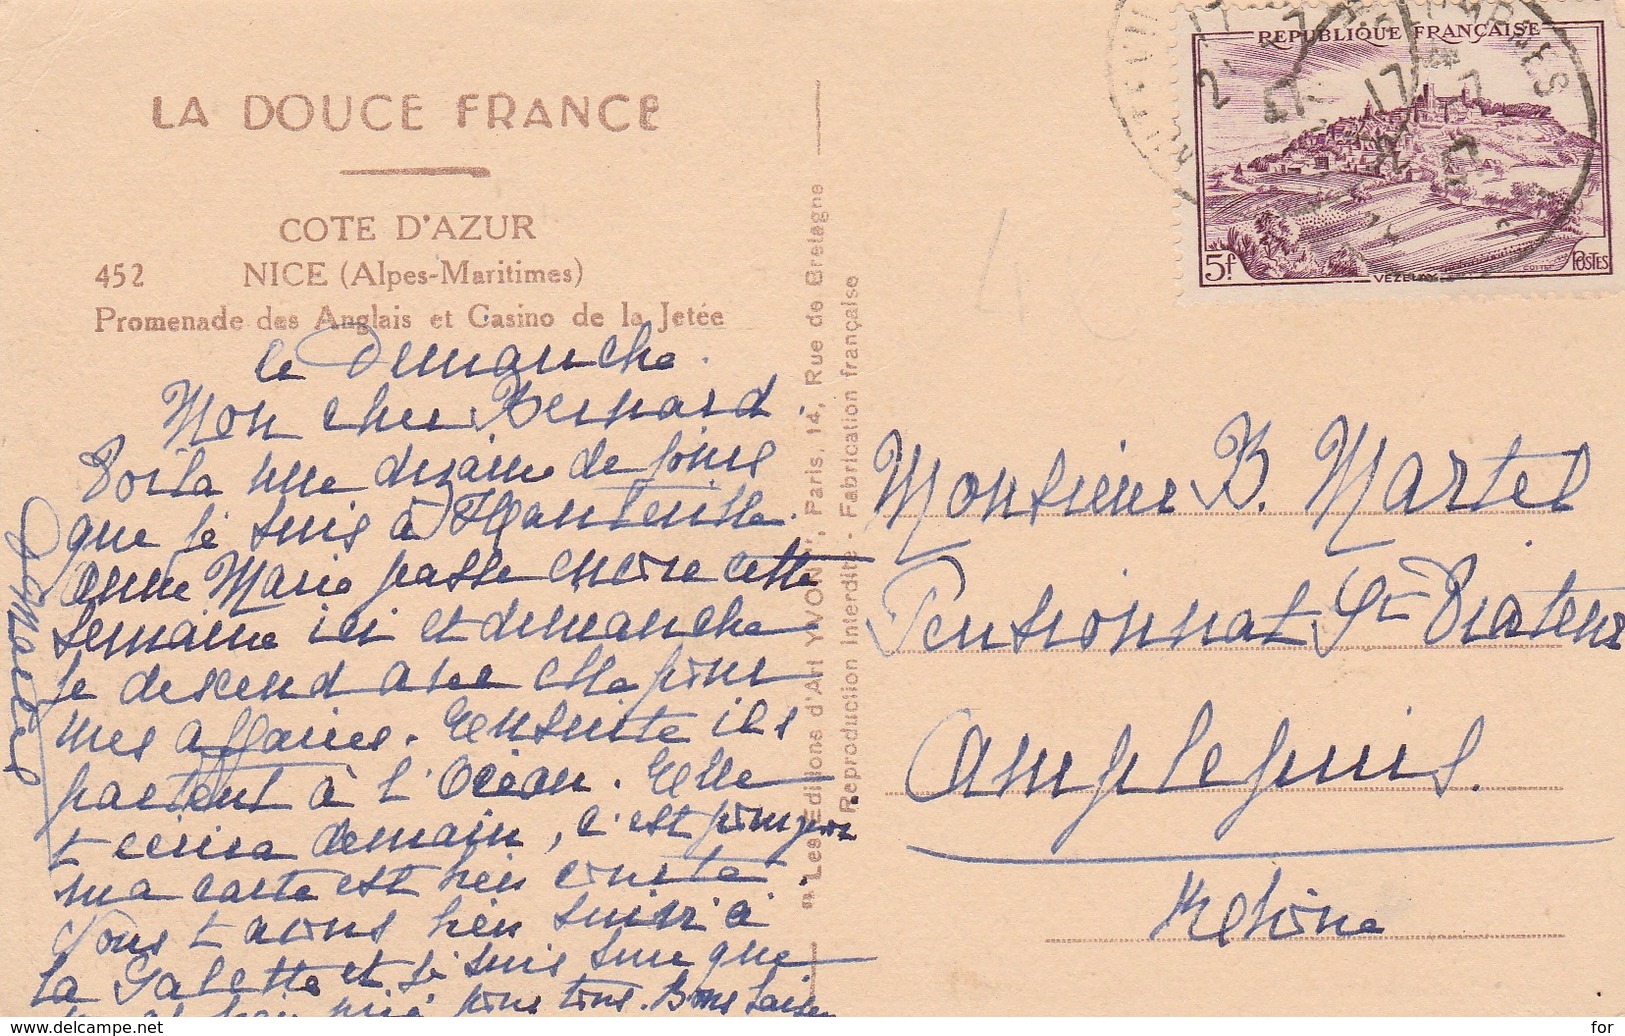 LA DOUCE FRANCE
COTE D'AZUR
452 NICE (Alpes-Maritimes)
Promenade des Anglais et Casino de la Jetée
le Dimanche.
Mon cher Bernard
Voila une dizaine de jours
que je suis à Hauteville.
Anne Marie passe encore cette
semaine ici et dimanche
je descend avec elle pour
mes affaires. Ensuite ils
partent à l'Océan. Elle
t ecrira demain, c'est pourquoi
ma carte est bien courte
Nous t avons bien suivi à
La Salette et je suis sure que
bien prié pour nous tous. Bons baisers
"Les Editions d'Art YVON", Paris, 14, Rue de Bretagne
Reproduction interdite - Fabrication française
REPUBLIQUE FRANÇAISE
5f
VEZELAY
POSTES
Monsieur B. Martel
Pensionnat St Viateur
Amplepuis.
Rhône
www.delcampe.net
for